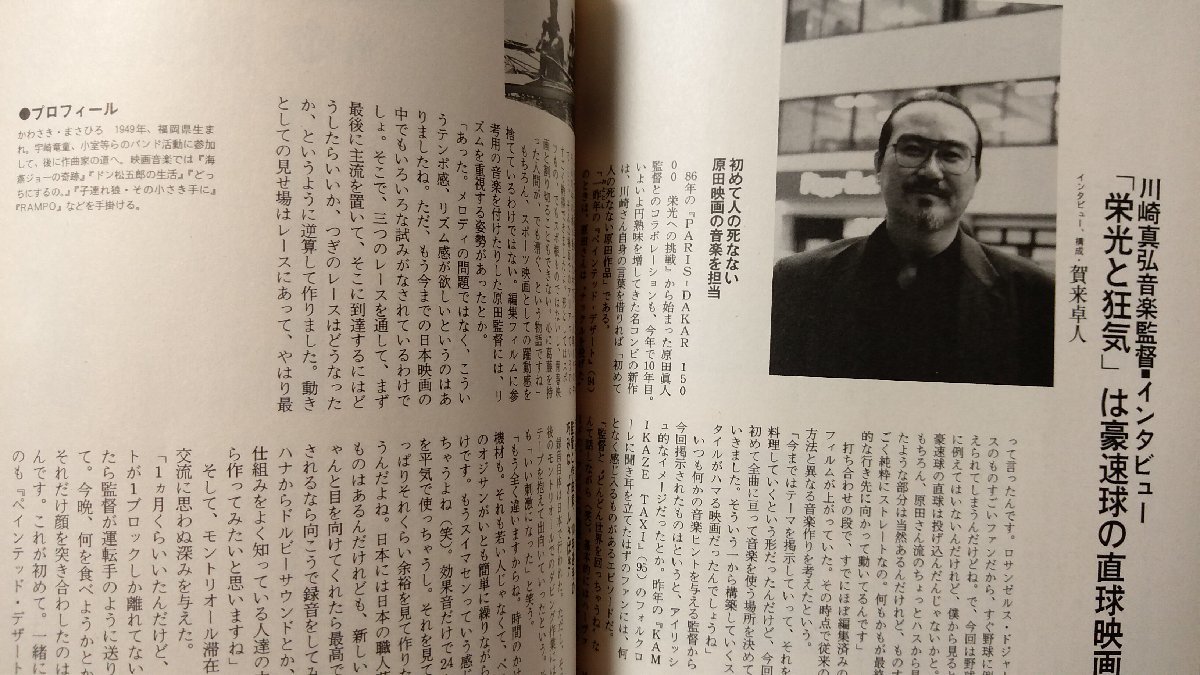 川崎真弘音楽監督・インタビュー
「栄光と狂気」は豪速球の直球映画
インタビュー、構成・賀来卓人
初めて人の死なない
原田映画の音楽を担当
86年の『PARIS-DAKAR 150
00 栄光への挑戦』から始まった原田眞人
監督とのコラボレーションも、今年で10年目。
いよいよ円熟味を増してきた名コンビの新作
は、川崎さん自身の言葉を借りれば「初めて
人の死なない原田作品」である。
「一昨年の『ペインテッド・デザート』(94)
って言ったんです。ロサンゼルス・ドジャー
スのものすごいファンだから、すぐ野球に例
えられてしまうんだけどね。で、今回は野球
に例えてはいないんだけれど、僕から見ると
豪速球の直球は投げ込んだんじゃないかと。
もちろん、原田さん流のちょっとハスから見
たような部分は当然あるんだけれど、ものす
ごく純粋にストレートなの。何もかもが最終
的な行き先に向かって動いてるんです」
打ち合わせの段で、すでにほぼ編集済みの
フィルムが上がっていた。その時点で従来の
方法と異なる音楽作りを考えたという。
「今まではテーマを掲示していって、それを
料理していくという形だったんだけど、今回
初めて全曲に亘って音楽を使う場所を決めて
いきました。そういう一から構築していくス
タイルがハマる映画だったんでしょうね」
いつも何かの音楽ヒントを与える監督から
今回掲示されたものはというと、アイリッシ
ュ的なイメージだったとか。昨年の『KAM
IKAZE TAXI』(95)のフォルクロ
ーレに聞き耳を立てたはずのファンには、何
となく感じ入るものがあるエピソードだ。
「監督と、どんどん世界を回っちゃうね、な
もちろん、スポーツ映画としての躍動感を
捨てているわけではない。編集フィルムに参
考用の音楽を付けたりした原田監督には、リ
ズムを重視する姿勢があったとか。
「あった。メロディの問題ではなく、こうい
うテンポ感、リズム感が欲しいというのはあ
りましたね。ただ、もう今までの日本映画の
中でもいろいろな試みがなされているわけで
しょ。そこで、三つのレースを通して、まず
最後に主流を置いて、そこに到達するにはど
うしたらいいか、つぎのレースはどうなった
か、というように逆算して作りました。動き
としての見せ場はレースにあって、やはり最
も「いい刺激になった」と笑う。
「もう全く違いますからね。時間のか
機材も。それも若い人じゃなくて、ベ
のオジサンがいとも簡単に繰りながら
けです。もうスイマセンっていう感じ
ちゃうよね(笑)。効果音だけで24
を平気で使っちゃうし。それを見て
っぱりそれくらい余裕を見て作りた
うんだよね。日本には日本の職人芸
ものはあるんだけれども、新しい
ゃんと目を向けてくれたら最高で
されるなら向こうで録音をしてみ
ハナからドルビーサウンドとか、
仕組みをよく知っている人達の
ら作ってみたいと思いますね」
そして、モントリオール滞在
交流に思わぬ深みを与えた。
「1ヵ月くらいいたんだけど、
トが1ブロックしか離れてない
たら監督が運転手のように送り
て。今晩、何を食べようかとか
それだけ顔を突き合わしたのは
んです。これが初めて。一緒に
のも『ペインテッド・デザート
●プロフィール
かわさき・まさひろ　1949年、福岡県生ま
れ。宇崎竜童、小室等らのバンド活動に参加
して、後に作曲家の道へ。映画音楽では『海
燕ジョーの奇跡』『ドン松五郎の生活』『どっ
ちにするの。』『子連れ狼・その小さき手に』
『RAMPO』などを手掛ける。